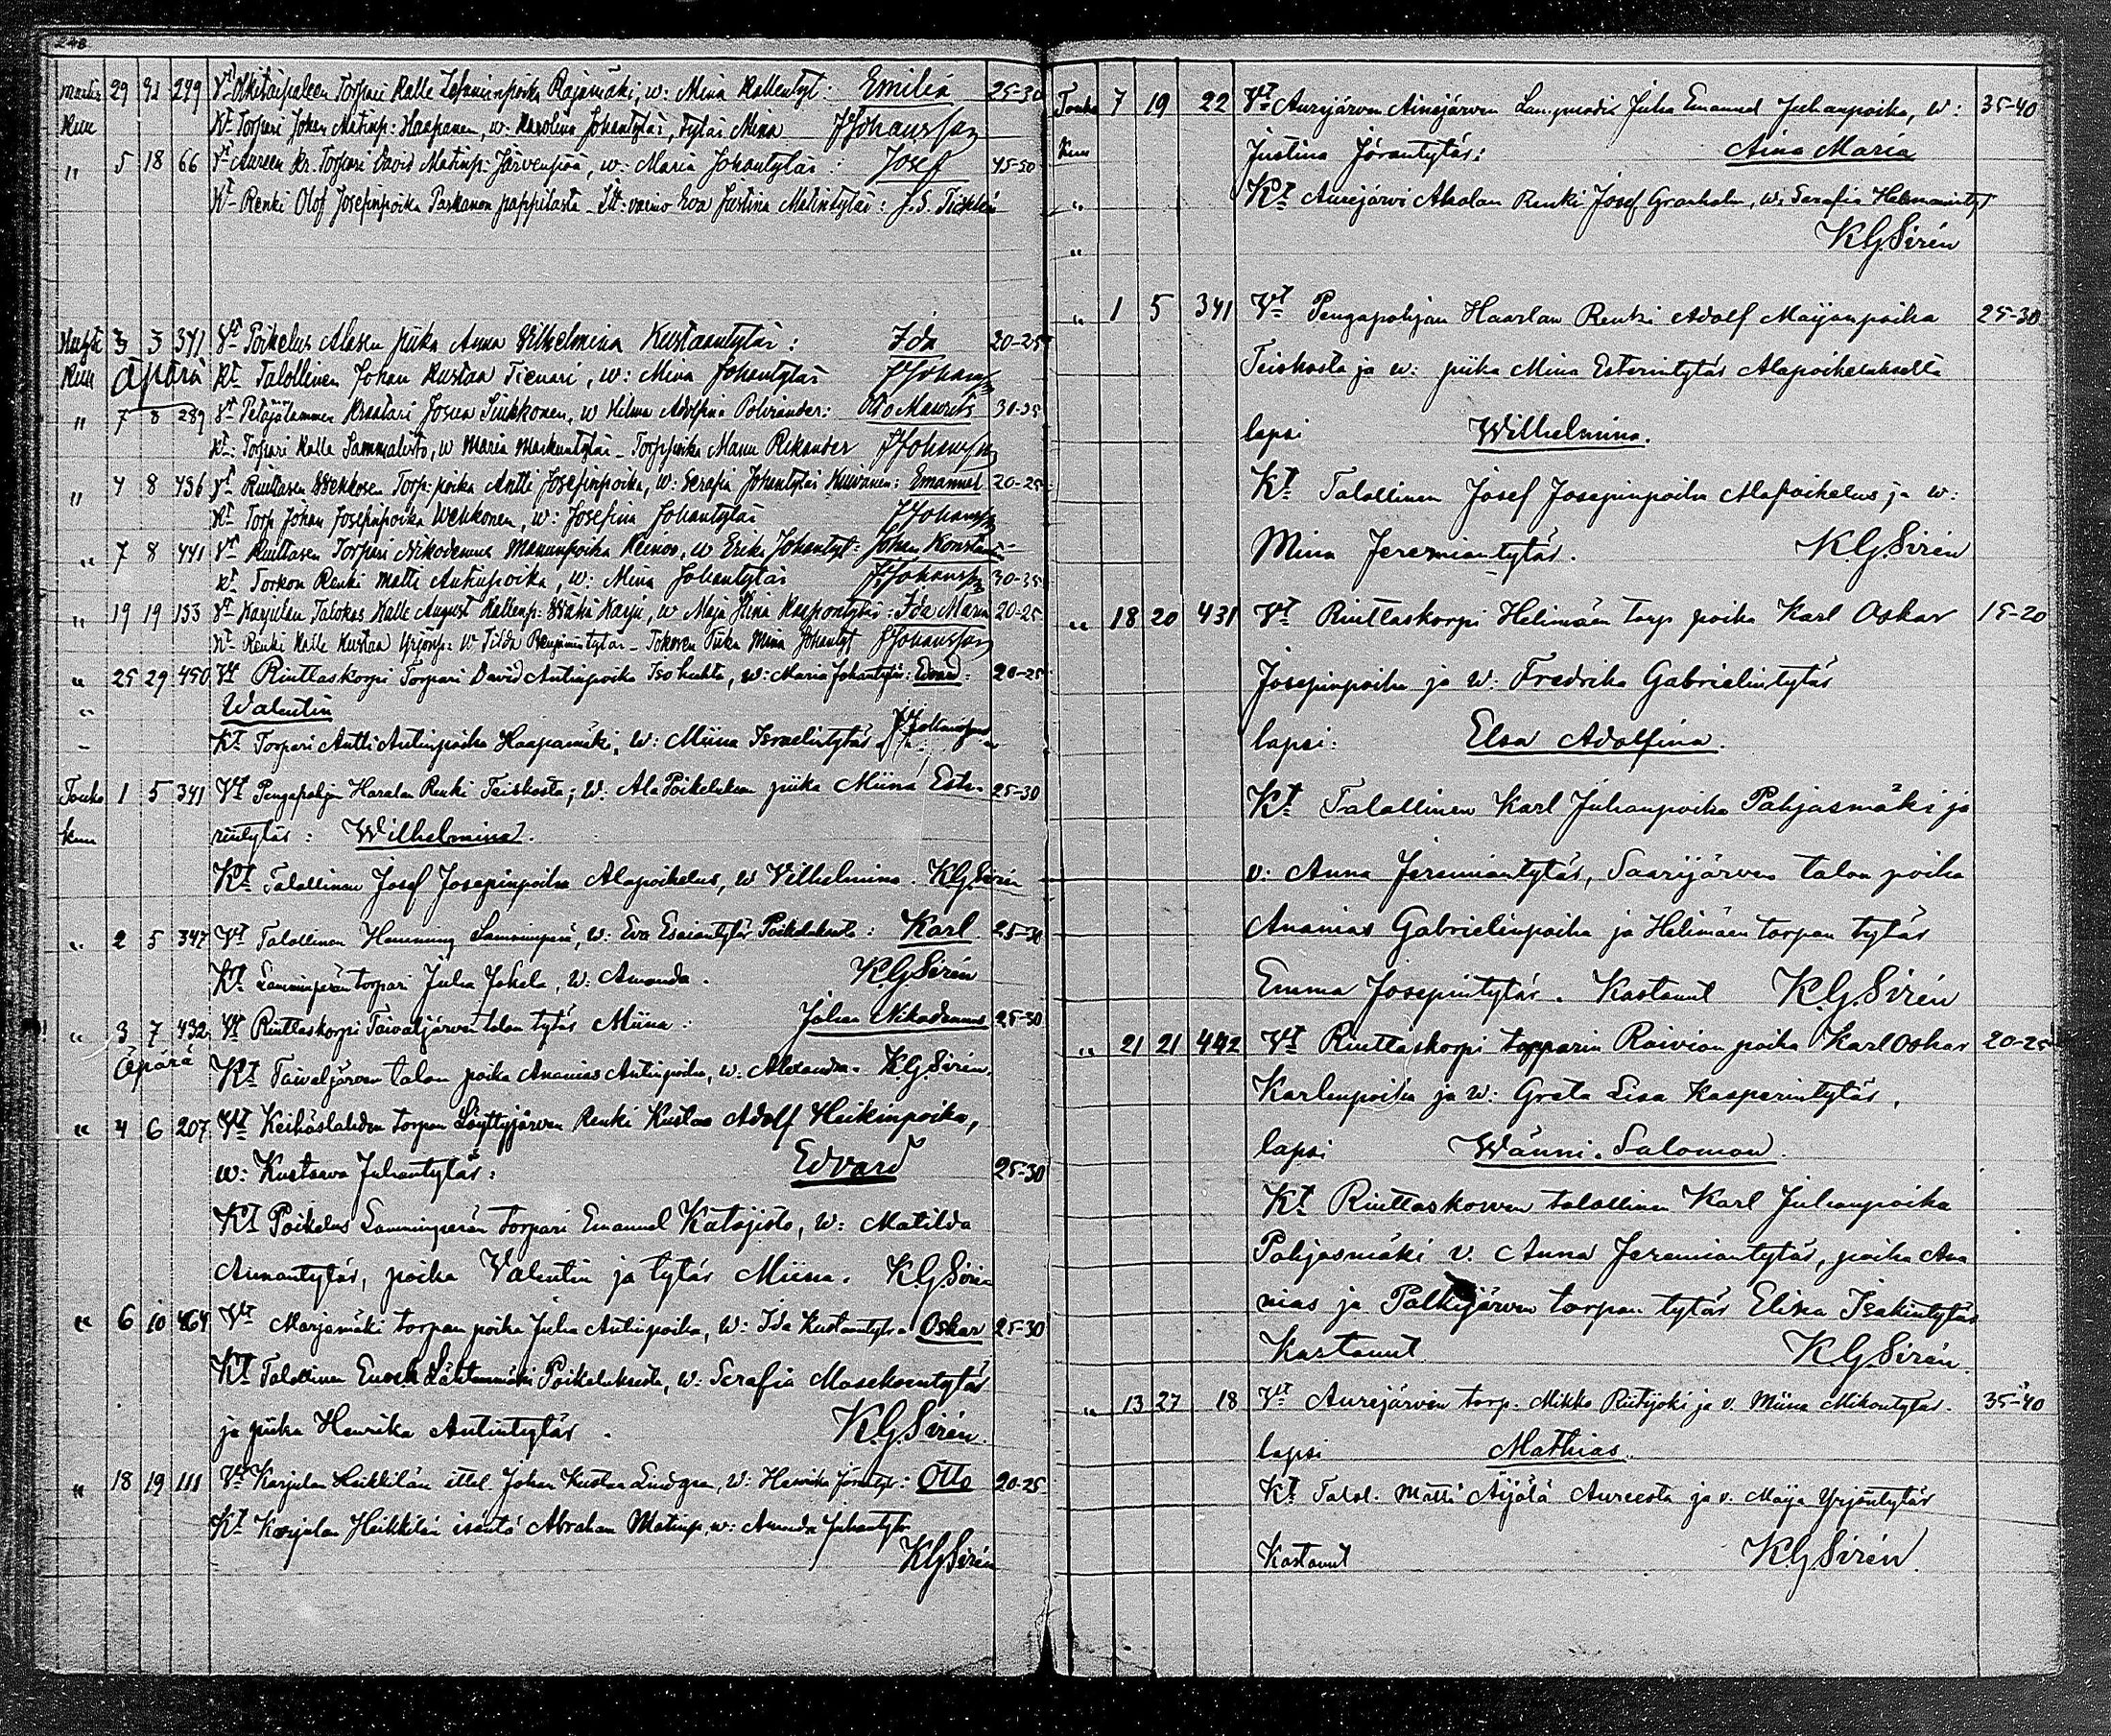 248
29 31 299 Vt Torpari Kalle Rajamäki, w: Mina Kallentyt: Emilia 25-30
Kuu Kt Torpari Johan Matinp: Haapanen, w: Karolina Johantytär, tytär Mina JJohansson
" 5 18 66 Vt Aureen Kr. Torpari David Matinp: Järvenpää, w: Maria Johantytär: Josef 45-50
Kt Renki Olof Josefinpoika Parkanon pappilasta - Itt: vaimo Eva Justina Matintytär:
Huhti 3 3 341 Vt Poikelus Alasen piika Anna Vilhelmina Kustaantytär: Ida 20-25
Kuu Äpärä Kt Talollinen Johan Kustaa Tienari, w: Mina Johantytär JJohansson
" 7 8 289 Vt Petäjälammen Kraatari Josua Sinkkonen, w Hilma Adolfina Polviander: Otto Maurits 30-35
Kt: Torpari Kalle Sammalisto, w Maria Markuntytär - Torp:poika Manu Rikander JJohansson
" 4 8 436 Vt Riuttasen Wehkosen Torp: poika Antti Josefinpoika, w: Serafia Johantytär Kuivanen: Emanuel 20-25
Kt Torp Johan Josefinpoika Wehkonen, w: Josefina Johantytär JJohansson
" 7 8 441 Vt Riuttasen Torpari Nikodemus Manunpoika Keinos, w Erika Johantyt: Johan Konstantin
Kt Torkon Renki Matti Antinpoika, w: Mina Johantytär JJohansson 30-35
" 19 19 153 Vt Karjulan Talokas Kalle August Kallenp: w Maja Stina Kaapontytär: Ida Maria 20-25
Kt Renki Kalle Kustaa Yrjönp: w Tilda Benjamintytär - Piika Mina Johantyt JJohansson
" 25 29 450 Vt Riuttaskorpi Torpari David Antinpoika Isohuhta, w: Maria Johantytär: Edvard 20-25
" Walentin
Kt Torpari Antti Antinpoika Haapamäki, w: Miina Israelintytär JJohansson
Touko 1 5 341 Vt Pengapohja Haralan Renki Teiskosta; w: Ala Poikeluksen piika Miina Este- 25-30
kuu rintytär: Wilhelmina.
Kt Talollinen Josef Josepinpoika Alapoikelus, w Vilhelmina. KGSirén
" 2 5 347 Vt Talollinen Hemming Lamminperä, w: Eva Esaiantytär Poikelukselta: Karl 25-30
Kt Lamminperän torpari Juha Jokela, w: Amanda. KGSirén
" 3 7 432 Vt Riuttaskorpi Taivaljärven talon tytär Miina: Johan Nikodemus 25-30
Äpärä Kt Taivaljärven talon poika Ananias Antinpoika, w: Alexandra. KG.Sirén.
" 4 6 207 Vt Keihäslahden torpan Löyttyjärven Renki Kustaa Adolf Heikinpoika,
w: Kustaava Juhantytär: Edvard 25-30
Kt Poikelus Lamminperän torpari Emanuel Katajisto, w: Matilda
Amantytär, poika Valentin ja tytär Miina. KGSirén
" 6 10 464 Vt Marjamäki torpan poika Juha Antinpoika, w: Ida Kustaantytär Oskar 25-30
Kt Talollinen Enoch Lähteenmäki Poikelukselta, w: Serafia Mooseksentytär
ja piika Henrika Antintytär. K.G.Sirén.
" 18 19 111 Vt Karjulan Heikkilän ittel. Johan Kustaa Lindgren, w: Henrika Jörantytr: Otto 20-25
Kt Karjulan Heikkilän isäntä Abraham Matinp, w: Amanda Juhantytr
KGSirén
Touko 7 19 22 Vt Aurejärven Ainesjärven Juha Emanuel Juhanpoika, w: 35-40
Kuu Justina Jörantytär: Aina Maria
" Kt Aurejärvi Aholan Renki Josef Granholm, w: Serafia Hermanintyt
" KGSirén
" 1 5 341 Vt Pengapohjan Haarlan Renki Adolf Maijanpoika 25-30
Teiskosta ja w: piika Mina Esterintytär Alapoikelukselta
lapsi Wilhelmina.
Kt Talollinen Josef Josepinpoika Alapoikelus ja w:
Mina Jeremiantytär. KGSirén
" 18 20 431 Vt Riuttaskorpi Helimäen torp poika Karl Oskar 15-20
Josepinpoika ja w: Fredrika Gabrielintytär
lapsi: Elsa Adolfina.
Kt Talollinen Karl Juhanpoika Pohjasmäki ja
v: Anna Jeremiantytär, Saarijärven talon poika
Ananias Gabrielinpoika ja Helimäen torpan tytär
Emma Josepintytär. Kastanut KG.Sirén
" 21 21 442 Vt Riuttaskorpi torparin Raivion poika Karl Oskar 20-25
Karlenpoika ja w: Greta Lisa Kasperintytär,
lapsi Wänni Salomon.
Kt Riuttaskorven talollinen Karl Juhanpoika
Pohjasmäki v. Anna Jeremiantytär, poika Ana
nias ja Palkijärven torpan tytär Elina Isakintytär
Kastanut KGSirén.
" 13 27 18 Vt Aurejärven torp. Mikko Riitijoki ja v. Miina Mikontytär. 35-40
lapsi Mathias.
Kt Talol. Matti Äijälä Aureesta ja v. Maija Yrjöntytär
Kastanut KGSirén.